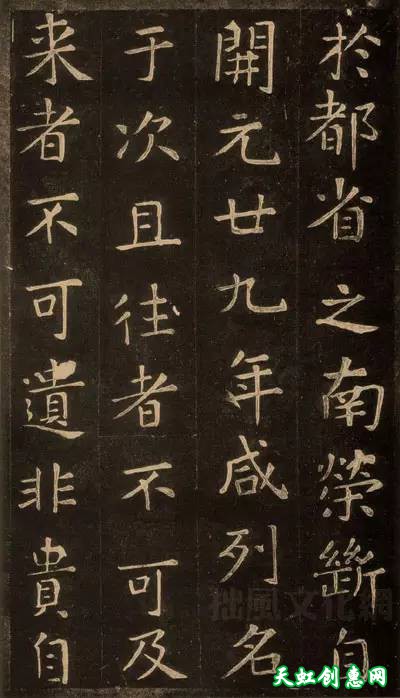 於都省之南榮斷自
開元廿九年咸列名
于次且往者不可及
来者不可遺非貴自
拙風文化網
天虹创惠网